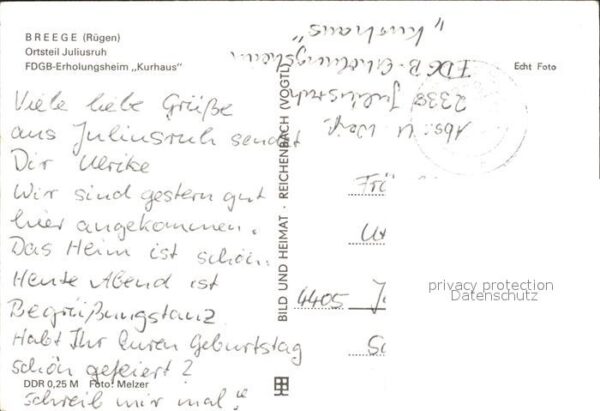 BREEGE (Rügen)
Ortsteil Juliusruh
FDGB-Erholungsheim „Kurhaus"
Viele liebe Grüße
aus Juliusruh sendet
Dir Ulrike
Wir sind gestern gut
hier angekommen.
Das Heim ist schön.
Heute Abend ist
Begrüßungstanz
Habt Ihr Euren Geburtstag
schön gefeiert?
schreib mir mal"
DDR 0,25 M Foto: Melzer
BILD UND HEIMAT · REICHENBACH (VOGTL)
Echt Foto
Abs: U.
2338 Juliusruh
FDGB-Erholungsheim
„Kurhaus"
4405
privacy protection
Datenschutz